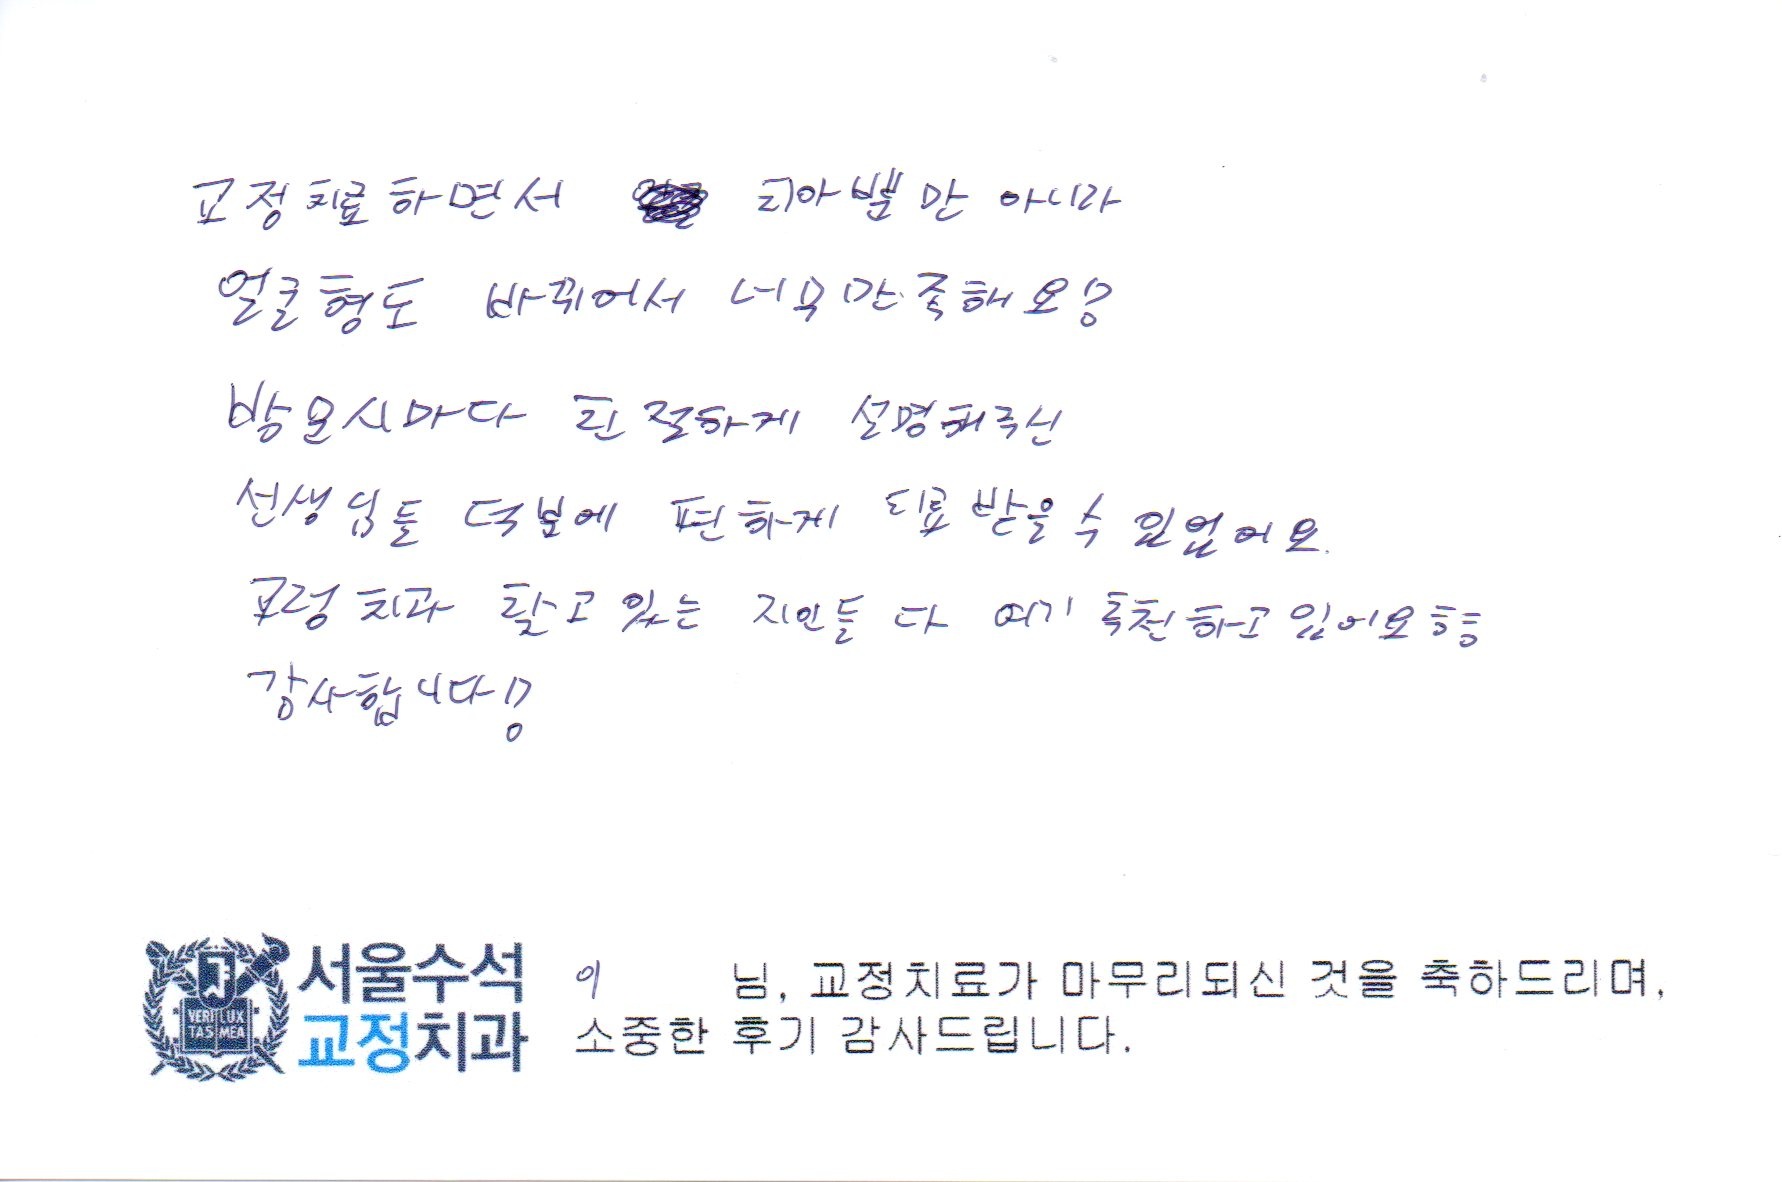 교정치료하면서 치아뿐만 아니라
얼굴형도 바뀌어서 너무 만족해요!
방문시마다 친절하게 설명해주신
선생님들 덕분에 편하게 치료 받을 수 있었어요.
교정 치과 찾고 있는 지인들 다 여기 추천하고 있어요ㅎㅎ
감사합니다!
VERI LUX
TAS MEA
서울수석
교정치과
이 님, 교정치료가 마무리되신 것을 축하드리며,
소중한 후기 감사드립니다.